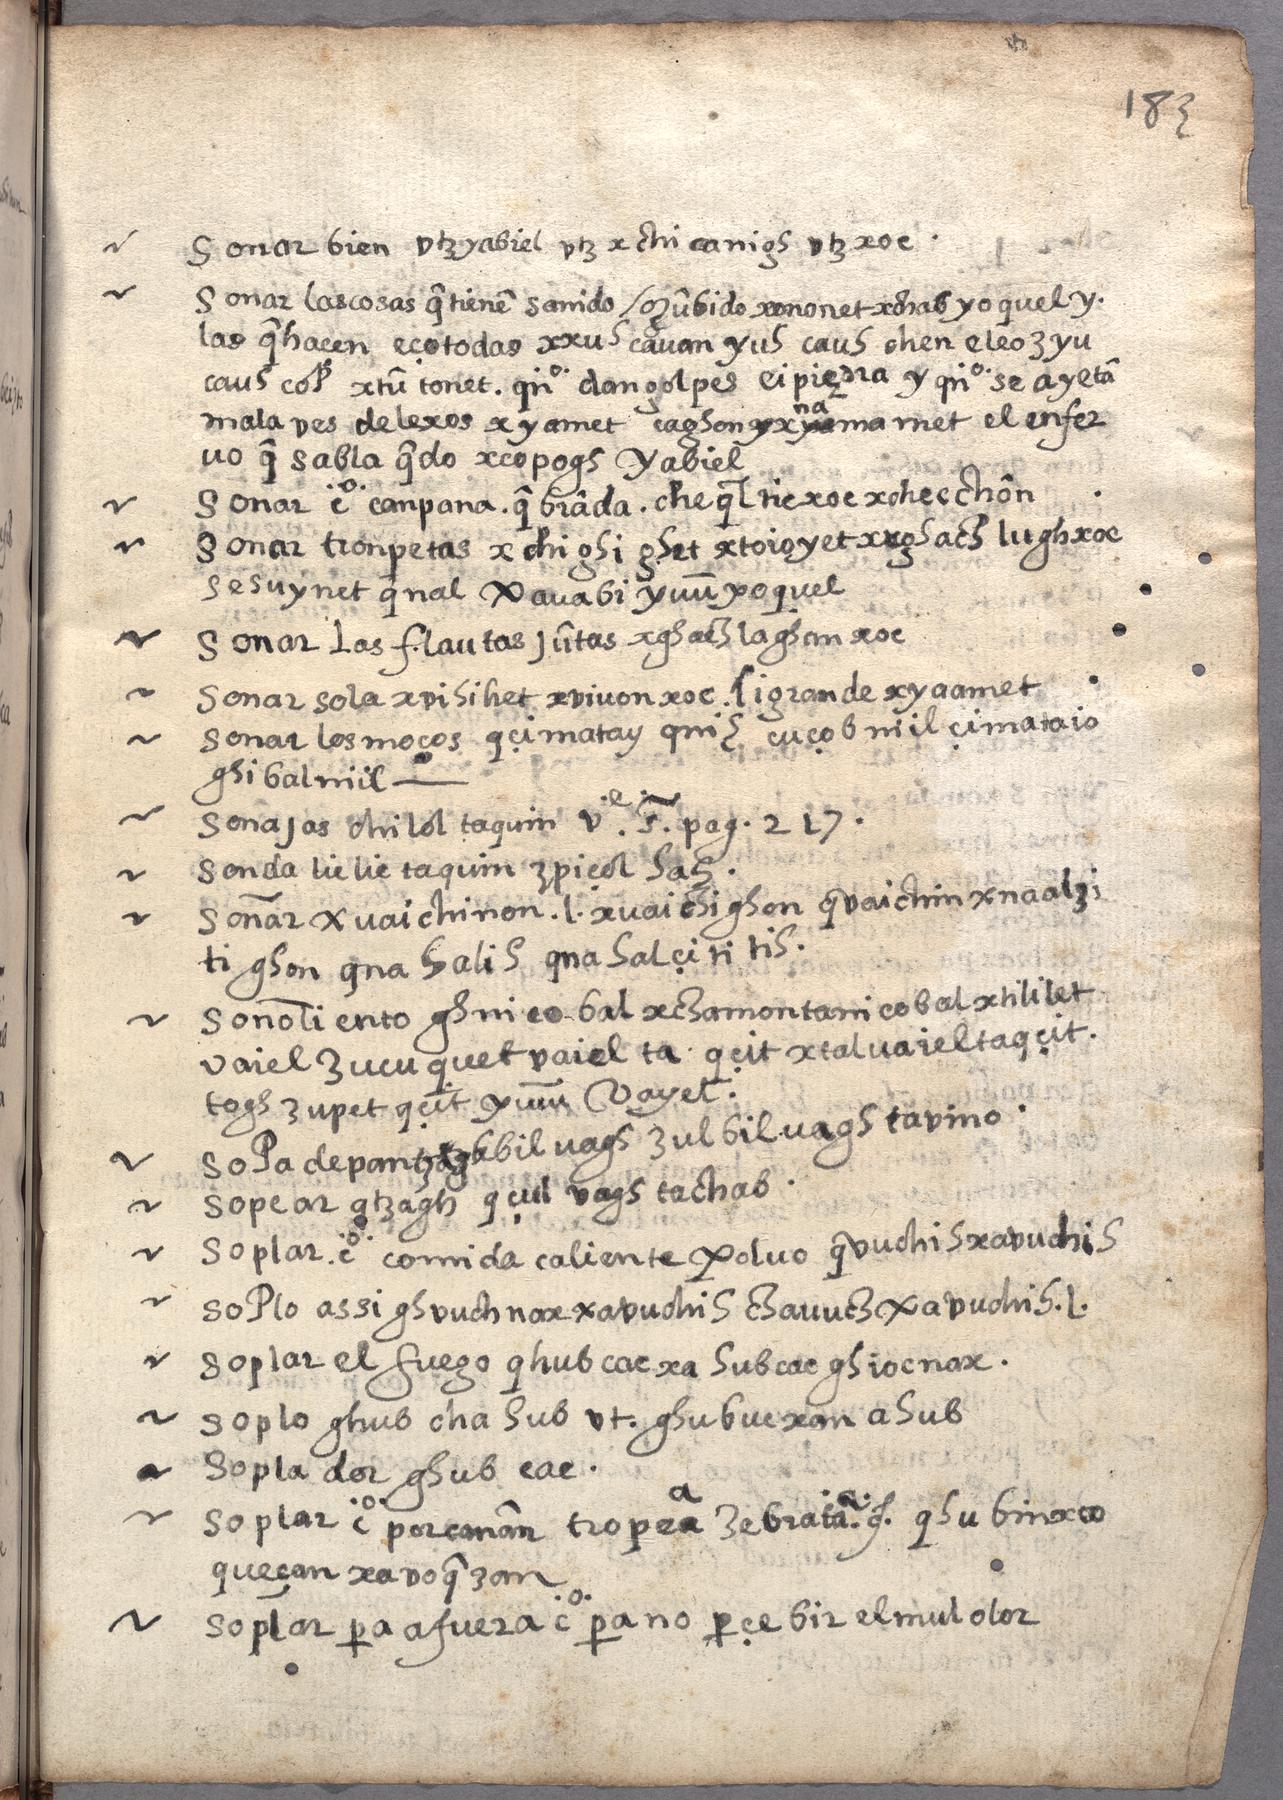 183
Sonar bien vtz yabiel vtz xchi canigh vtz xoc.
Sonar las cosas q̂ tienē sanido / xononet xchab yoquel y.
las q̂ hacen eco todas xxuh cauan yuh cauh chen eleoz yu
cauh xtū tonet. qn̄o. dan golpes ei piedra y qn̄o. se ayetā
mala ves de lexos xyamet caghon na mamet el enfer
uo q̂ sabla q̂do xcopogh yabiel
Sonar c̄o. canpana. q̂ brāda. che qł tic xoc xchecchōn
Sonar tronpetas xchighi ghet xtoioyet xxghach lugh xoc
sesuynet qnal vavabi yuū xoquel
Sonar las flautas jūtas xghach laghan xoc
Sonar sola xvisihet xviuon xoc. si grande xyaamet
Sonar los moços qçimatay qnih cuçob niil çimataio
ghibal niil
Sonajas chilol taquin ve. S. pag. 217.
Sonda lie lie taquin zpiçol hah.
Soñar xuaichinon. l. xuaichighon qvaichin xnaalzi
tighon qna halih qna halçi ti tih.
Soñoliento ghnicobal xchamontani cobal xtililet
vaiel zucu quet vaiel ta qçit xtal vaiel taqçit.
togh zupet qçit yuuu vayel.
Sopa de pan bil uagh zulbil uagh tavino.
Sopear qtzagh qçul vagh tachab.
Soplar. c̄o. comida caliente polvo qvuchih xavuchih
Soplo assi ghvuch nax xavuchih chauuch xavuchih. l.
Soplar el fuego qhub cac xa hub cac ghioc nax.
Soplo ghub cha hub vt. ghubuc xan a hub
Soplador ghub cac.
Soplar c̄o por canān tropea zebratā. qhubin xco
queçan xavoq̂zan
Soplar pa afuera c̄o pa no perçebir el mul olor